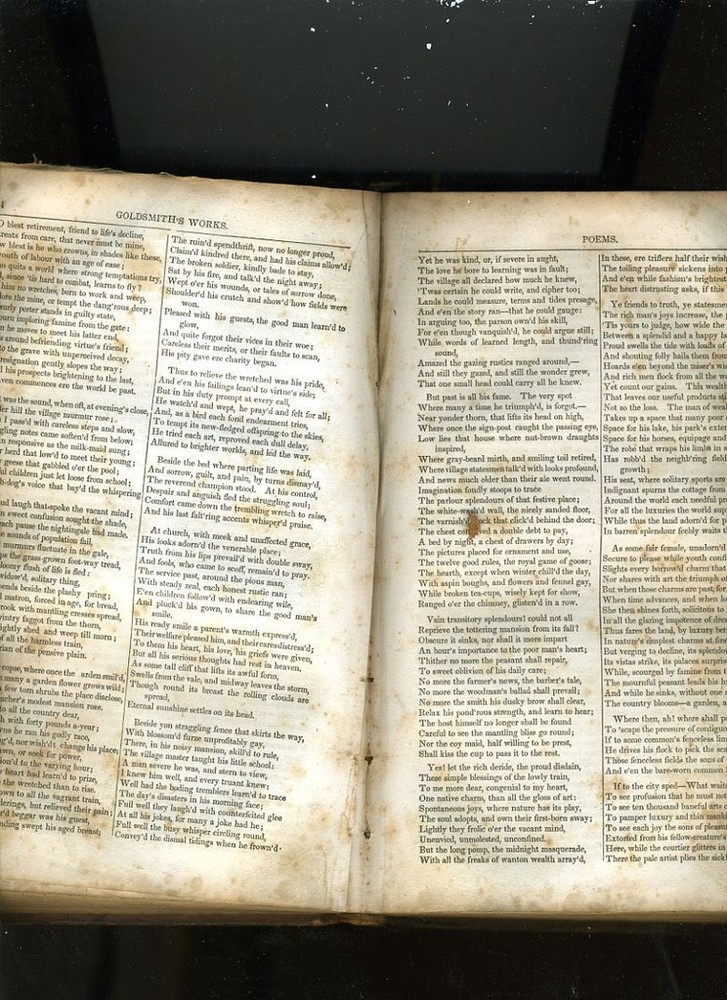 GOLDSMITH'S WORKS.
blest retirement, friend to life's decline,
treats from care, that never must be mine,
blest is he who crowns, in shades like these,
outh of labour with an age of ease;
quits a world where strong temptations try,
since 'tis hard to combat, learns to fly!
him no wretches, born to work and weep,
lore the mine, or tempt the dang'rous deep;
surly porter stands in guilty state,
urn imploring famine from the gate:
he moves to meet his latter end,
s around befriending virtue's friend;
to the grave with unperceived decay,
resignation gently slopes the way;
l his prospects brightening to the last,
ven commences ere the world be past.
was the sound, when oft, at evening's close,
er hill the village murmur rose:
I pass'd with careless steps and slow,
gling notes came soften'd from below;
n responsive as the milk-maid sung;
r herd that low'd to meet their young;
geese that gabbled o'er the pool;
ul children just let loose from school;
h-dog's voice that bay'd the whispering
ud laugh that spoke the vacant mind;
n sweet confusion sought the shade,
ach pause the nightingale had made.
e sounds of population fail,
murmurs fluctuate in the gale,
ps the grass-grown foot-way tread,
loomy flush of life is fled:
widow'd, solitary thing,
bends beside the plashy spring;
l matron, forced in age, for bread,
rook with mantling cresses spread,
vintry faggot from the thorn,
ightly shed and weep till morn;
of all the harmless train,
rian of the pensive plain.
copse, where once the arden smil'd,
many a garden flower grows wild;
few torn shrubs the place disclose,
acher's modest mansion rose.
to all the country dear,
with forty pounds a-year;
wns he ran his godly race,
ng'd, nor wish'd to change his place;
awn, or seek for power,
ion'd to the varying hour;
heart had learn'd to prize,
e wretched than to rise.
own to all the vagrant train,
lerings, but relieved their pain;
r'd beggar was his guest,
nding swept his aged breast;
The ruin'd spendthrift, now no longer proud,
Claim'd kindred there, and had his claims allow'd;
The broken soldier, kindly bade to stay,
Sat by his fire, and talk'd the night away;
Wept o'er his wounds, or tales of sorrow done,
Shoulder'd his crutch and show'd how fields were
won.
Pleased with his guests, the good man learn'd to
glow,
And quite forgot their vices in their woe;
Careless their merits, or their faults to scan,
His pity gave ere charity began.
Thus to relieve the wretched was his pride,
And e'en his failings lean'd to virtue's side;
But in his duty prompt at every call,
He watch'd and wept, he pray'd and felt for all;
And, as a bird each fond endearment tries,
To tempt its new-fledged offspring to the skies,
He tried each art, reproved each dull delay,
Allured to brighter worlds, and led the way.
Beside the bed where parting life was laid,
And sorrow, guilt, and pain, by turns dismay'd,
The reverend champion stood. At his control,
Despair and anguish fled the struggling soul;
Comfort came down the trembling wretch to raise,
And his last falt'ring accents whisper'd praise.
At church, with meek and unaffected grace,
His looks adorn'd the venerable place;
Truth from his lips prevail'd with double sway,
And fools, who came to scoff, remain'd to pray.
The service past, around the pious man,
With steady zeal, each honest rustic ran;
E'en children follow'd with endearing wile,
And pluck'd his gown, to share the good man's
smile.
His ready smile a parent's warmth express'd,
Their welfare pleased him, and their cares distress'd;
To them his heart, his love, his griefs were given,
But all his serious thoughts had rest in heaven.
As some tall cliff that lifts its awful form,
Swells from the vale, and midway leaves the storm,
Though round its breast the rolling clouds are
spread,
Eternal sunshine settles on its head.
Beside yon straggling fence that skirts the way,
With blossom'd furze unprofitably gay,
There, in his noisy mansion, skill'd to rule,
The village master taught his little school:
A man severe he was, and stern to view,
I knew him well, and every truant knew;
Well had the boding tremblers learn'd to trace
The day's disasters in his morning face;
Full well they laugh'd with counterfeited glee
At all his jokes, for many a joke had he;
Full well the busy whisper circling round,
Convey'd the dismal tidings when he frown'd·
POEMS.
Yet he was kind, or, if severe in aught,
The love he bore to learning was in fault;
The village all declared how much he knew,
'Twas certain he could write, and cipher too;
Lands he could measure, terms and tides presage,
And e'en the story ran—that he could gauge:
In arguing too, the parson own'd his skill,
For e'en though vanquish'd, he could argue still;
While words of learned length, and thund'ring
sound,
Amazed the gazing rustics ranged around,—
And still they gazed, and still the wonder grew,
That one small head could carry all he knew.
But past is all his fame. The very spot
Where many a time he triumph'd, is forgot.—
Near yonder thorn, that lifts its head on high,
Where once the sign-post caught the passing eye,
Low lies that house where nut-brown draughts
inspired,
Where gray-beard mirth, and smiling toil retired,
Where village statesmen talk'd with looks profound,
And news much older than their ale went round.
Imagination fondly stoops to trace
The parlour splendours of that festive place;
The white-wash'd wall, the nicely sanded floor,
The varnish'd clock that click'd behind the door;
The chest contrived a double debt to pay,
A bed by night, a chest of drawers by day;
The pictures placed for ornament and use,
The twelve good rules, the royal game of goose;
The hearth, except when winter chill'd the day,
With aspin boughs, and flowers and fennel gay,
While broken tea-cups, wisely kept for show,
Ranged o'er the chimney, glisten'd in a row.
Vain transitory splendours! could not all
Reprieve the tottering mansion from its fall?
Obscure it sinks, nor shall it more impart
An hour's importance to the poor man's heart;
Thither no more the peasant shall repair,
To sweet oblivion of his daily care;
No more the farmer's news, the barber's tale,
No more the woodman's ballad shall prevail;
No more the smith his dusky brow shall clear,
Relax his pond'rous strength, and learn to hear;
The host himself no longer shall be found
Careful to see the mantling bliss go round;
Nor the coy maid, half willing to be prest,
Shall kiss the cup to pass it to the rest.
Yes! let the rich deride, the proud disdain,
These simple blessings of the lowly train,
To me more dear, congenial to my heart,
One native charm, than all the gloss of art:
Spontaneous joys, where nature has its play,
The soul adopts, and own their first-born sway;
Lightly they frolic o'er the vacant mind,
Unenvied, unmolested, unconfined.
But the long pomp, the midnight masquerade,
With all the freaks of wanton wealth array'd,
In these, ere triflers half their wish
The toiling pleasure sickens into
And e'en while fashion's brightest
The heart distrusting asks, if this
Ye friends to truth, ye statesmen
The rich man's joys increase, the
'Tis yours to judge, how wide the
Between a splendid and a happy la
Proud swells the tide with loads of
And shouting folly hails them from
Hoards e'en beyond the miser's wis
And rich men flock from all the w
Yet count our gains. This wealth
That leaves our useful products sti
Not so the loss. The man of weal
Takes up a space that many poor
Space for his lake, his park's exten
Space for his horses, equipage and
The robe that wraps his limbs in
Has robb'd the neighb'ring field
growth;
His seat, where solitary sports are
Indignant spurns the cottage from
Around the world each needful pro
For all the luxuries the world sup
While thus the land adorn'd for
In barren splendour feebly waits th
As some fair female, unadorn'd
Secure to please while youth confi
Slights every borrow'd charm that
Nor shares with art the triumph of
But when those charms are past, for
When time advances, and when lo
She then shines forth, solicitous to
In all the glaring impotence of dres
Thus fares the land, by luxury
In nature's simplest charms at first
But verging to decline, its splendou
Its vistas strike, its palaces surpris
While, scourged by famine from t
The mournful peasant leads his h
And while he sinks, without one
The country blooms—a garden, a
Where then, ah! where shall po
To 'scape the pressure of contiguou
If to some common's fenceless lim
He drives his flock to pick the sca
Those fenceless fields the sons of
And e'en the bare-worn common
If to the city sped—What waits
To see profusion that he must not
To see ten thousand baneful arts c
To pamper luxury and thin mankin
To see each joy the sons of pleasu
Extorted from his fellow-creature's
Here, while the courtier glitters in
There the pale artist plies the sick